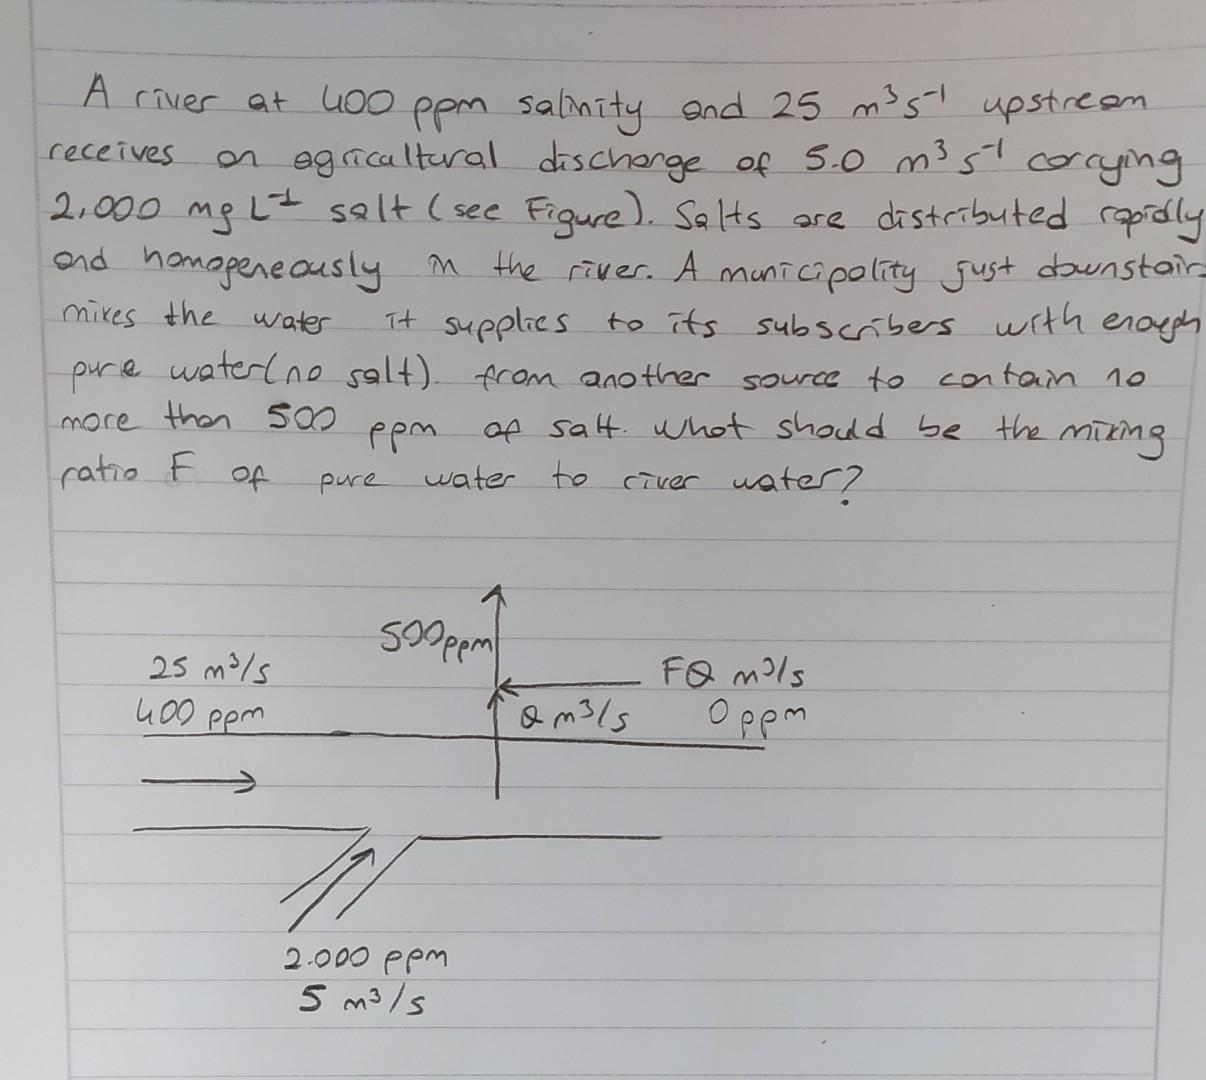 A river at 400 ppm salinity and 25 m³s⁻¹ upstream
receives an agricultural discharge of 5.0 m³s⁻¹ carrying
2,000 mg L⁻¹ salt (see Figure). Salts are distributed rapidly
and homogeneously in the river. A municipality just downstair
mixes the water it supplies to its subscribers with enough
pure water (no salt). from another source to contain no
more than 500 ppm of salt. What should be the mixing
ratio F of pure water to river water?
500ppm
25 m³/s
FQ m³/s
400 ppm
Q m³/s
0 ppm
2.000 ppm
5 m³/s